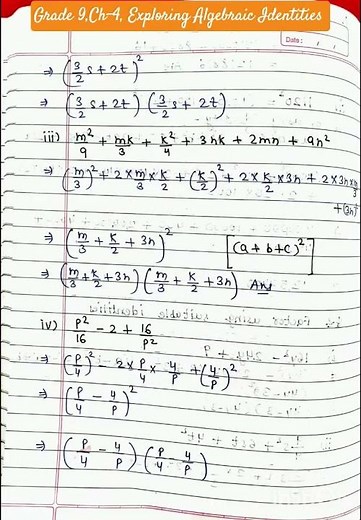 Grade 9,Ch-4, Exploring Algebraic Identities
Date :
⇒ (3/2 s + 2t)²
⇒ (3/2 s + 2t) (3/2 s + 2t)
iii) m²/9 + mk/3 + k²/4 + 3nk + 2mn + 9n²
⇒ (m/3)² + 2 × m/3 × k/2 + (k/2)² + 2 × k/2 × 3n + 2 × 3n × m/3
+ (3n)²
(m/3 + k/2 + 3n)² [(a + b + c)²]
⇒ (m/3 + k/2 + 3n) (m/3 + k/2 + 3n) Ans
iv) p²/16 - 2 + 16/p²
⇒ (p/4)² - 2 × p/4 × 4/p + (4/p)²
⇒ (p/4 - 4/p)²
⇒ (p/4 - 4/p) (p/4 - 4/p)